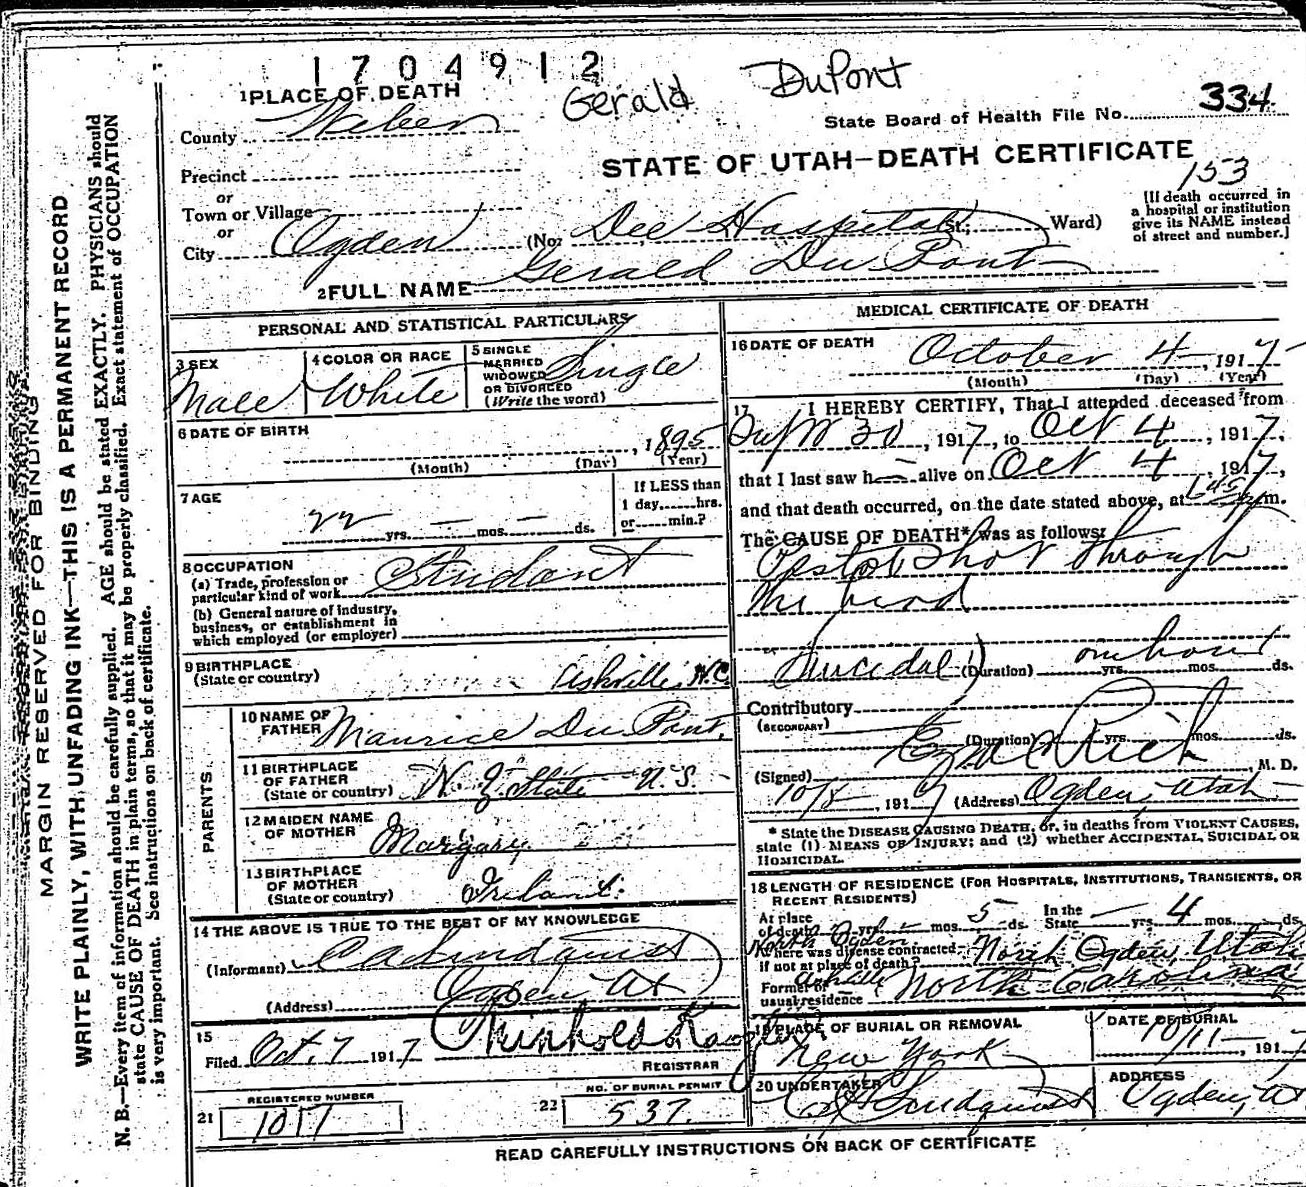 1704912
Gerald DuPont
1 PLACE OF DEATH
County Weber
State Board of Health File No. 334
STATE OF UTAH—DEATH CERTIFICATE
153
Precinct
or
Town or Village
or
City Ogden (No. Dee Hospital St.; Ward)
[If death occurred in
a hospital or institution
give its NAME instead
of street and number.]
2 FULL NAME Gerald Du Pont
PERSONAL AND STATISTICAL PARTICULARS
3 SEX
Male
4 COLOR OR RACE
White
5 SINGLE
MARRIED
WIDOWED
OR DIVORCED
(Write the word)
Single
6 DATE OF BIRTH
, 1895
(Month) (Day) (Year)
7 AGE
22 yrs. — mos. — ds.
If LESS than
1 day, hrs.
or min.?
8 OCCUPATION
(a) Trade, profession or
particular kind of work Student
(b) General nature of industry,
business, or establishment in
which employed (or employer)
9 BIRTHPLACE
(State or country) Ashville, N.C.
PARENTS
10 NAME OF
FATHER Maurice Du Pont.
11 BIRTHPLACE
OF FATHER
(State or country) N. Y. State U.S.
12 MAIDEN NAME
OF MOTHER Margary
13 BIRTHPLACE
OF MOTHER
(State or country) Ireland.
14 THE ABOVE IS TRUE TO THE BEST OF MY KNOWLEDGE
(Informant) CA Lindquist
(Address) Ogden Ut
15
Filed Oct. 7 1917
REGISTRAR
REGISTERED NUMBER
21
NO. OF BURIAL PERMIT
22 537.
MEDICAL CERTIFICATE OF DEATH
16 DATE OF DEATH October 4 , 1917
(Month) (Day) (Year)
17 I HEREBY CERTIFY, That I attended deceased from
30 , 1917, to Oct 4 , 1917,
that I last saw h alive on Oct 4 , 1917,
and that death occurred, on the date stated above, at m.
The CAUSE OF DEATH* was as follows:
Pistol Shot through
the head
(Suicidal) (Duration) one hour yrs. mos. ds.
Contributory
(SECONDARY)
(Duration) yrs. mos. ds.
(Signed) Rich , M. D.
10/8 , 1917 (Address) Ogden, Utah
* State the DISEASE CAUSING DEATH, or, in deaths from VIOLENT CAUSES,
state (1) MEANS OF INJURY; and (2) whether ACCIDENTAL, SUICIDAL OR
HOMICIDAL.
18 LENGTH OF RESIDENCE (FOR HOSPITALS, INSTITUTIONS, TRANSIENTS, OR
RECENT RESIDENTS)
At place
of death yrs. mos. 5 ds. In the
State — yrs. 4 mos. ds.
North Ogden
Where was disease contracted,
if not at place of death? North Ogden, Utah
Former or
usual residence Ashville North Carolina
19 PLACE OF BURIAL OR REMOVAL
New York
DATE OF BURIAL
10/11 , 1917
20 UNDERTAKER
CA Lindquist
ADDRESS
Ogden, Ut
READ CAREFULLY INSTRUCTIONS ON BACK OF CERTIFICATE
MARGIN RESERVED FOR BINDING
WRITE PLAINLY, WITH UNFADING INK—THIS IS A PERMANENT RECORD
N. B.—Every item of information should be carefully supplied. AGE should be stated EXACTLY. PHYSICIANS should
state CAUSE OF DEATH in plain terms, so that it may be properly classified. Exact statement of OCCUPATION
is very important. See instructions on back of certificate.